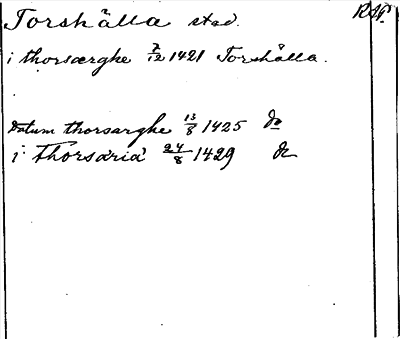 Torshälla stad. RAp.
i thorsærghe 7/12 1421 Torshälla.
Datum thorsarghe 13/8 1425 do
i Thorsaria 24/8 1429 do